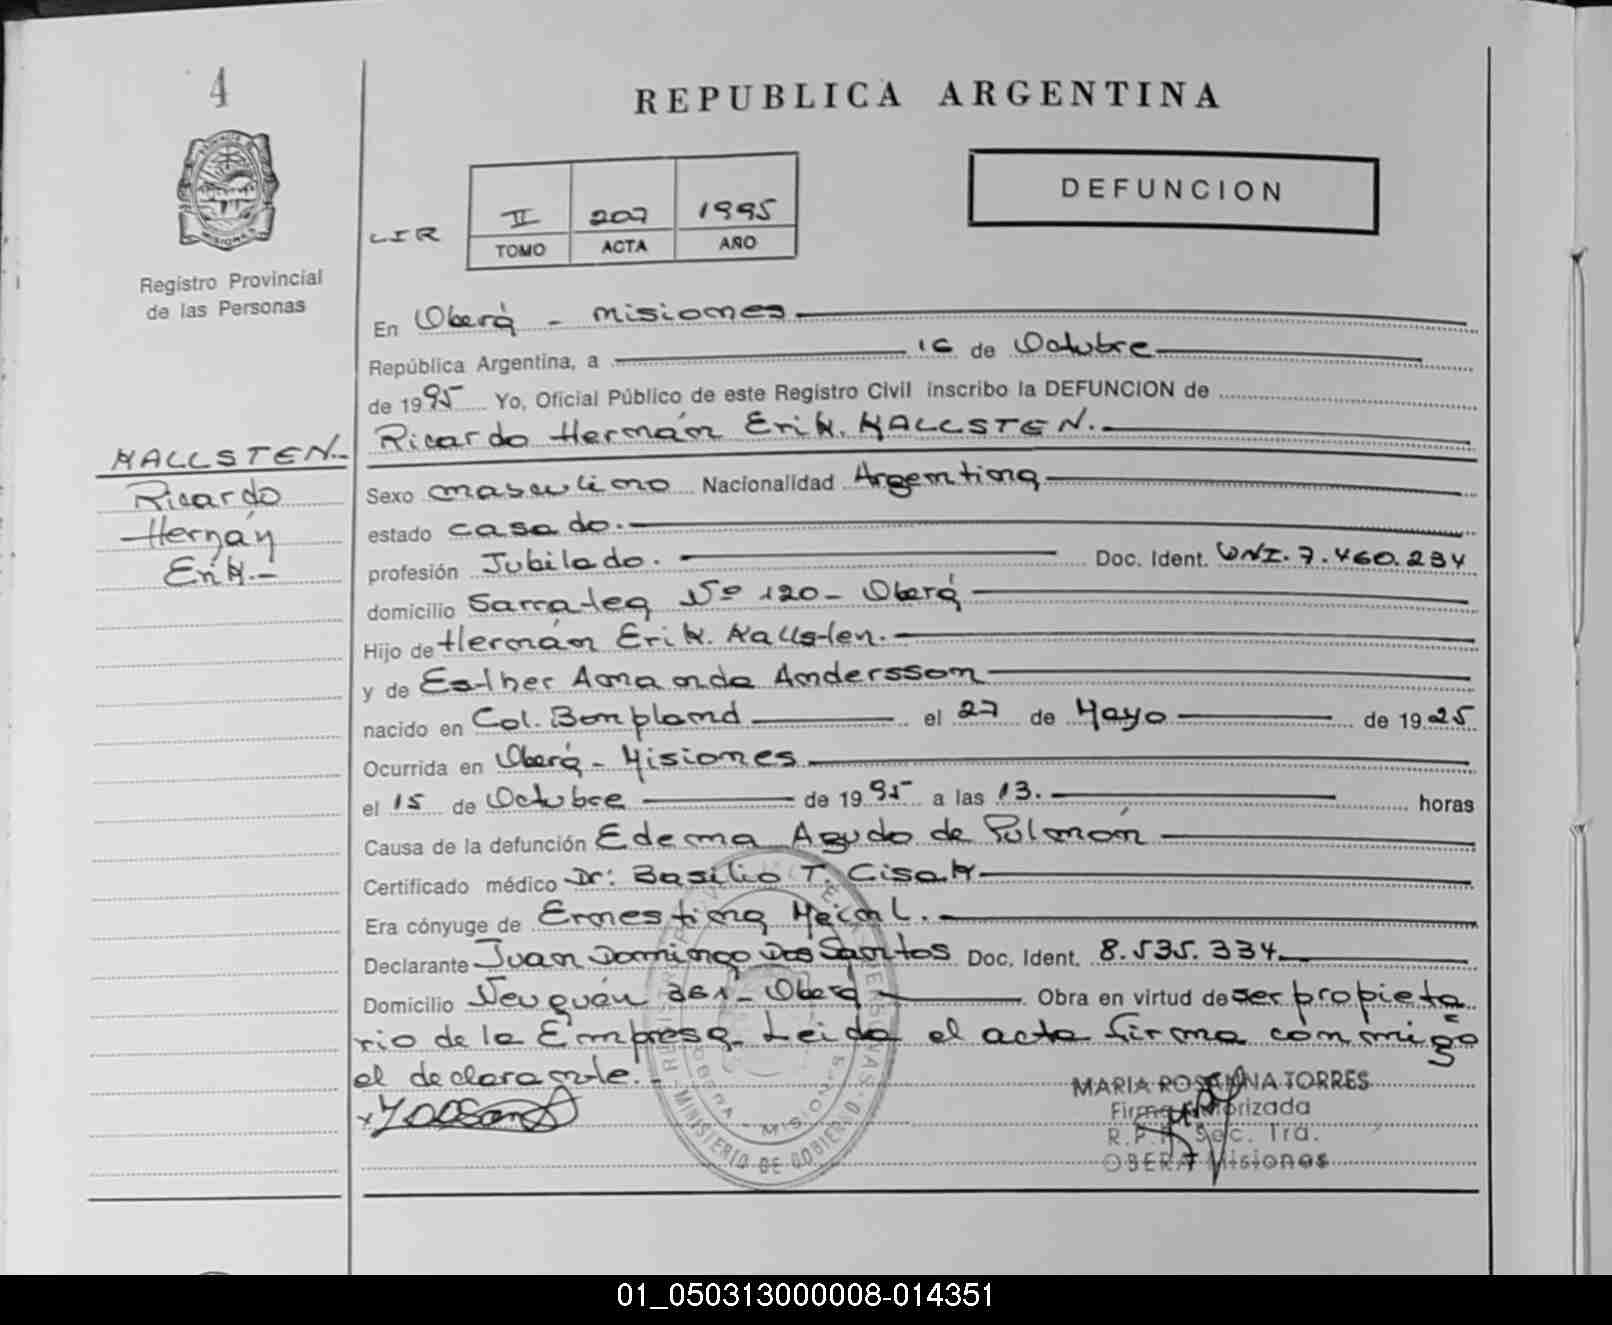 4
REPUBLICA ARGENTINA
DEFUNCION
LIR
II 207 1995
TOMO ACTA AÑO
Registro Provincial
de las Personas
En Oberá - Misiones
República Argentina, a 16 de Octubre
de 1995 Yo, Oficial Público de este Registro Civil inscribo la DEFUNCION de
Ricardo Hernán Erik. KALLSTEN.
KALLSTEN.-
Ricardo
Hernán
Erik.-
Sexo masculino Nacionalidad Argentina
estado casado.
profesión Jubilado. Doc. Ident. DNI. 7.460.234
domicilio Sarratea Nº 120 - Oberá
Hijo de Hernán Erik. Kallsten.
y de Esther Amanda Andersson
nacido en Col. Bonpland el 27 de Mayo de 1925
Ocurrida en Oberá - Misiones
el 15 de Octubre de 1995 a las 13. horas
Causa de la defunción Edema Agudo de Pulmón
Certificado médico Dr: Basilio T. Cisak
Era cónyuge de Ernestina
Declarante Juan Domingo Dos Santos Doc. Ident. 8.535.334
Domicilio Neuquén 361 - Oberá Obra en virtud de ser propieta
rio de la Empresa. Leida el acta firma conmigo
el declarante.-
MARIA ROSANNA TORRES
Firma Autorizada
R.P.P. Sec. 1ra.
OBERA Misiones
OBERA - MISIONES
MINISTERIO DE GOBIERNO
01_050313000008-014351